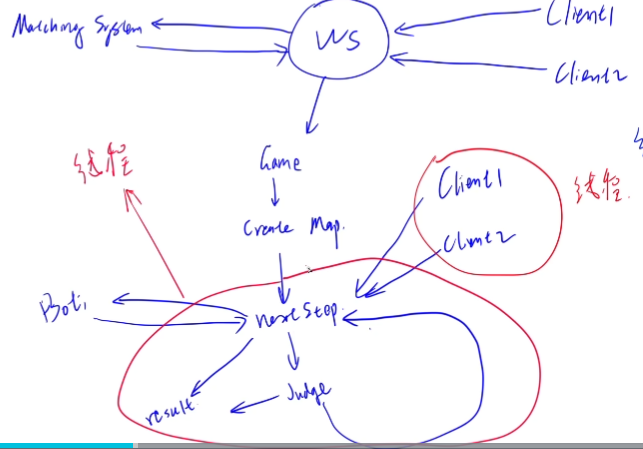 Matching System
WS
Client1
Client2
线程
Game
Create Map.
Client1
Client2
线程.
Bot1
next Step.
Judge
result